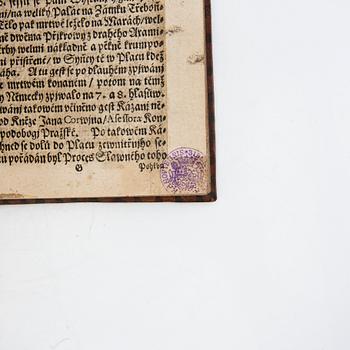 na welký Palác na Zámku Třeboň
Tělo pak mrtwé ležélo na Marách/ wel-
ně dwěma Přikrowy z drahého Axami-
rby welmi nákladně a pěkně krumpo-
ni přistřené/ w Synčy té w Placu kdež
áha. A tu gest se po dlauhém zpjwání
mrtwém konaném/ potom na témž
y Německy zpjwalo na 7. a 8. hlasůw
wáni takowém včiněno gest Kázanj ně-
od Kněze Jana Corwjna/ Assessora Kon-
podobogj Pražské. Po takowém Ká-
hned se dolů do Placu zewnitřnjho se-
u pořádán byl Proces Slawného toho
G Pohřbu